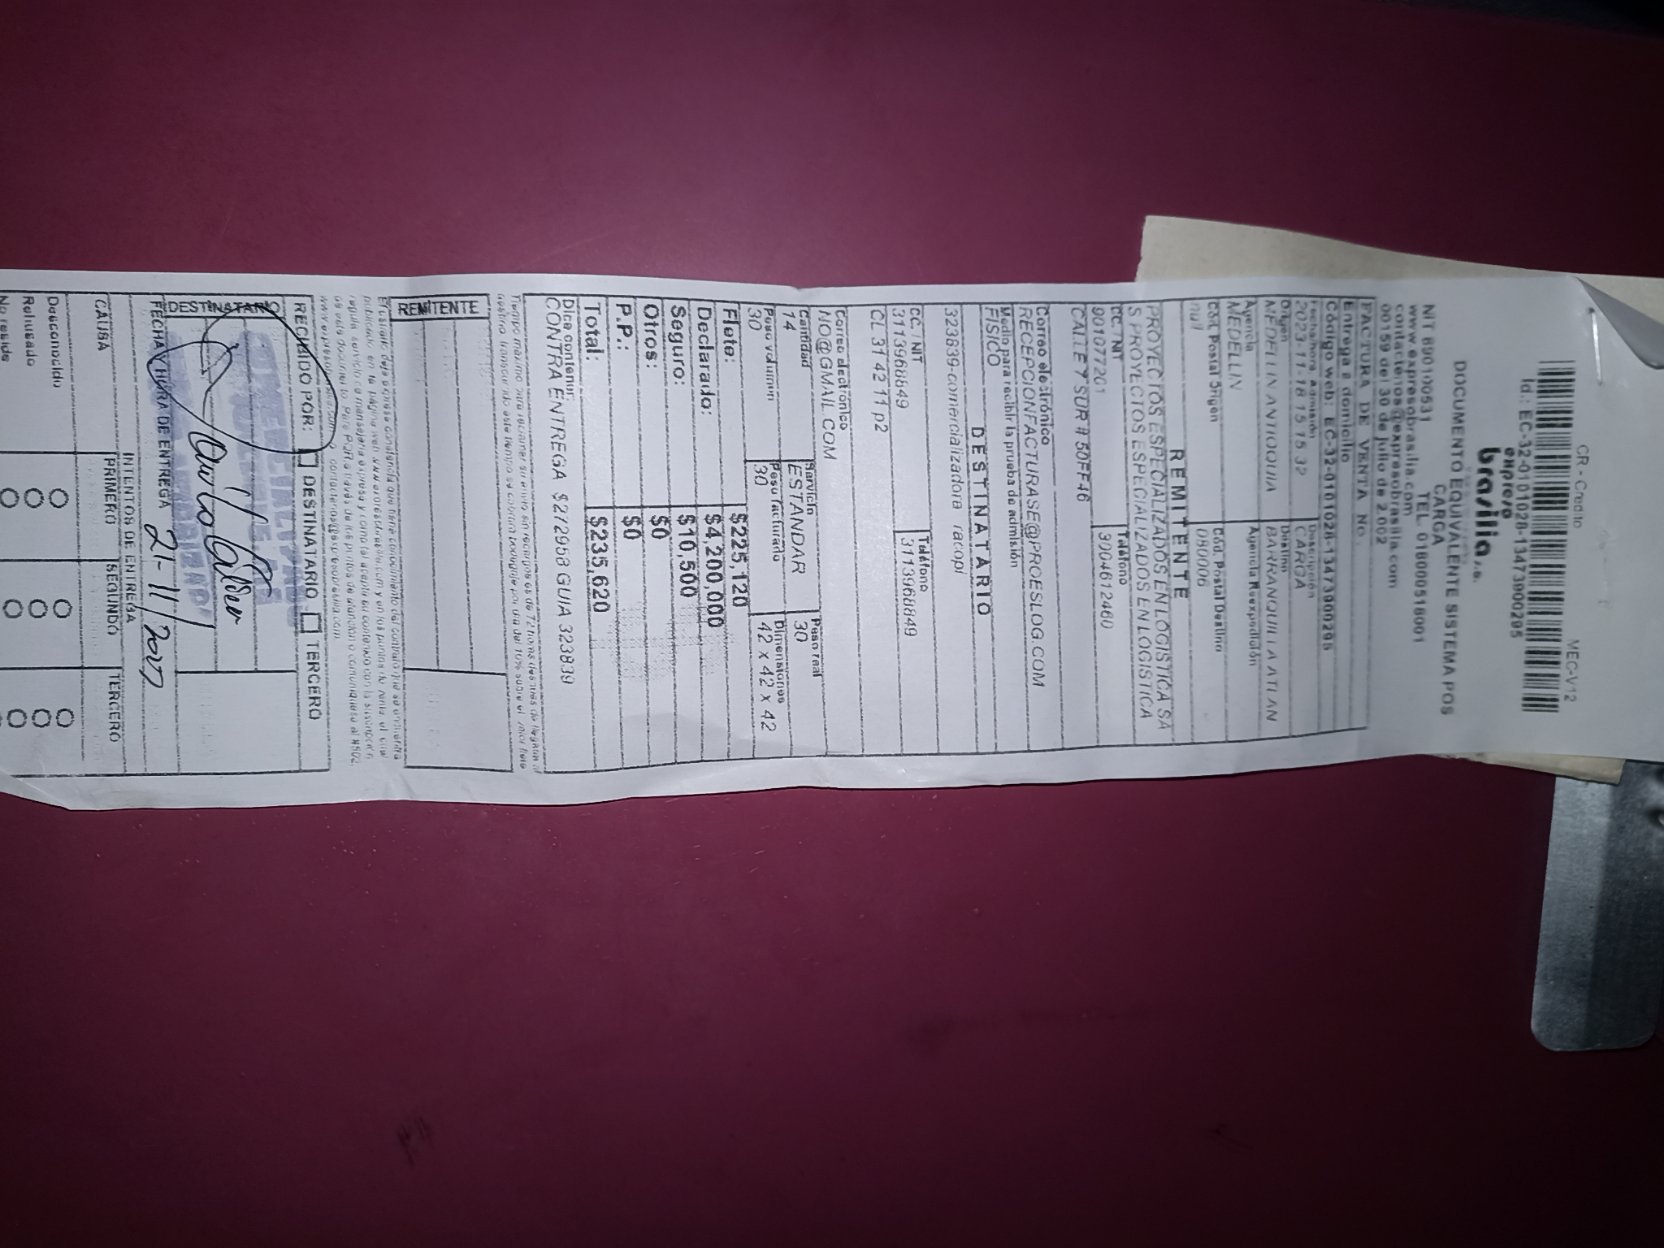 CR - Credito MEC-V12
Id.: EC-32-0101028-13473900295
expreso
brasilia s.a.
DOCUMENTO EQUIVALENTE SISTEMA POS
CARGA
NIT 890100531 TEL. 018000518001
www.expresobrasilia.com
contactenos@expresobrasilia.com
0059 del 30 de julio de 2.002
FACTURA DE VENTA No.
Entrega a domicilio
Código web: EC-32-0101028-13473900295
Fecha/hora admisión Descripción
2023-11-18 15:15:32 CARGA
Origen Destino
MEDELLIN ANTIOQUIA BARRANQUILLA ATLAN
Agencia Agencia Reexpedición
MEDELLIN
Cód. Postal Origen Cód. Postal Destino
null 080006
REMITENTE
PROYECTOS ESPECIALIZADOS EN LOGISTICA SA
S PROYECTOS ESPECIALIZADOS EN LOGISTICA
CC. NIT Teléfono
901077201 3004612480
CALLE 7 SUR # 50FF46
Correo electrónico
RECEPCIONFACTURASE@PROESLOG.COM
Medio para recibir la prueba de admisión
FISICO
DESTINATARIO
323839-comercializadora racopi
CC. NIT Teléfono
3113968849 3113968849
CL 31 42 11 p2
Correo electrónico
NO@GMAIL.COM
Cantidad Servicio Peso real
14 ESTANDAR 30
Peso volumen Peso facturado Dimensiones
30 30 42 x 42 x 42
Flete: $225,120
Declarado: $4,200,000
Seguro: $10,500
Otros: $0
P.P.: $0
Total: $235,620
Dice contener:
CONTRA ENTREGA $272958 GUIA 323839
REMITENTE
RECIBIDO POR: DESTINATARIO TERCERO
DESTINATARIO
FECHA Y HORA DE ENTREGA 21-11/2023
INTENTOS DE ENTREGA
CAUSA PRIMERO SEGUNDO TERCERO
Desconocido
Rehusado
No reside